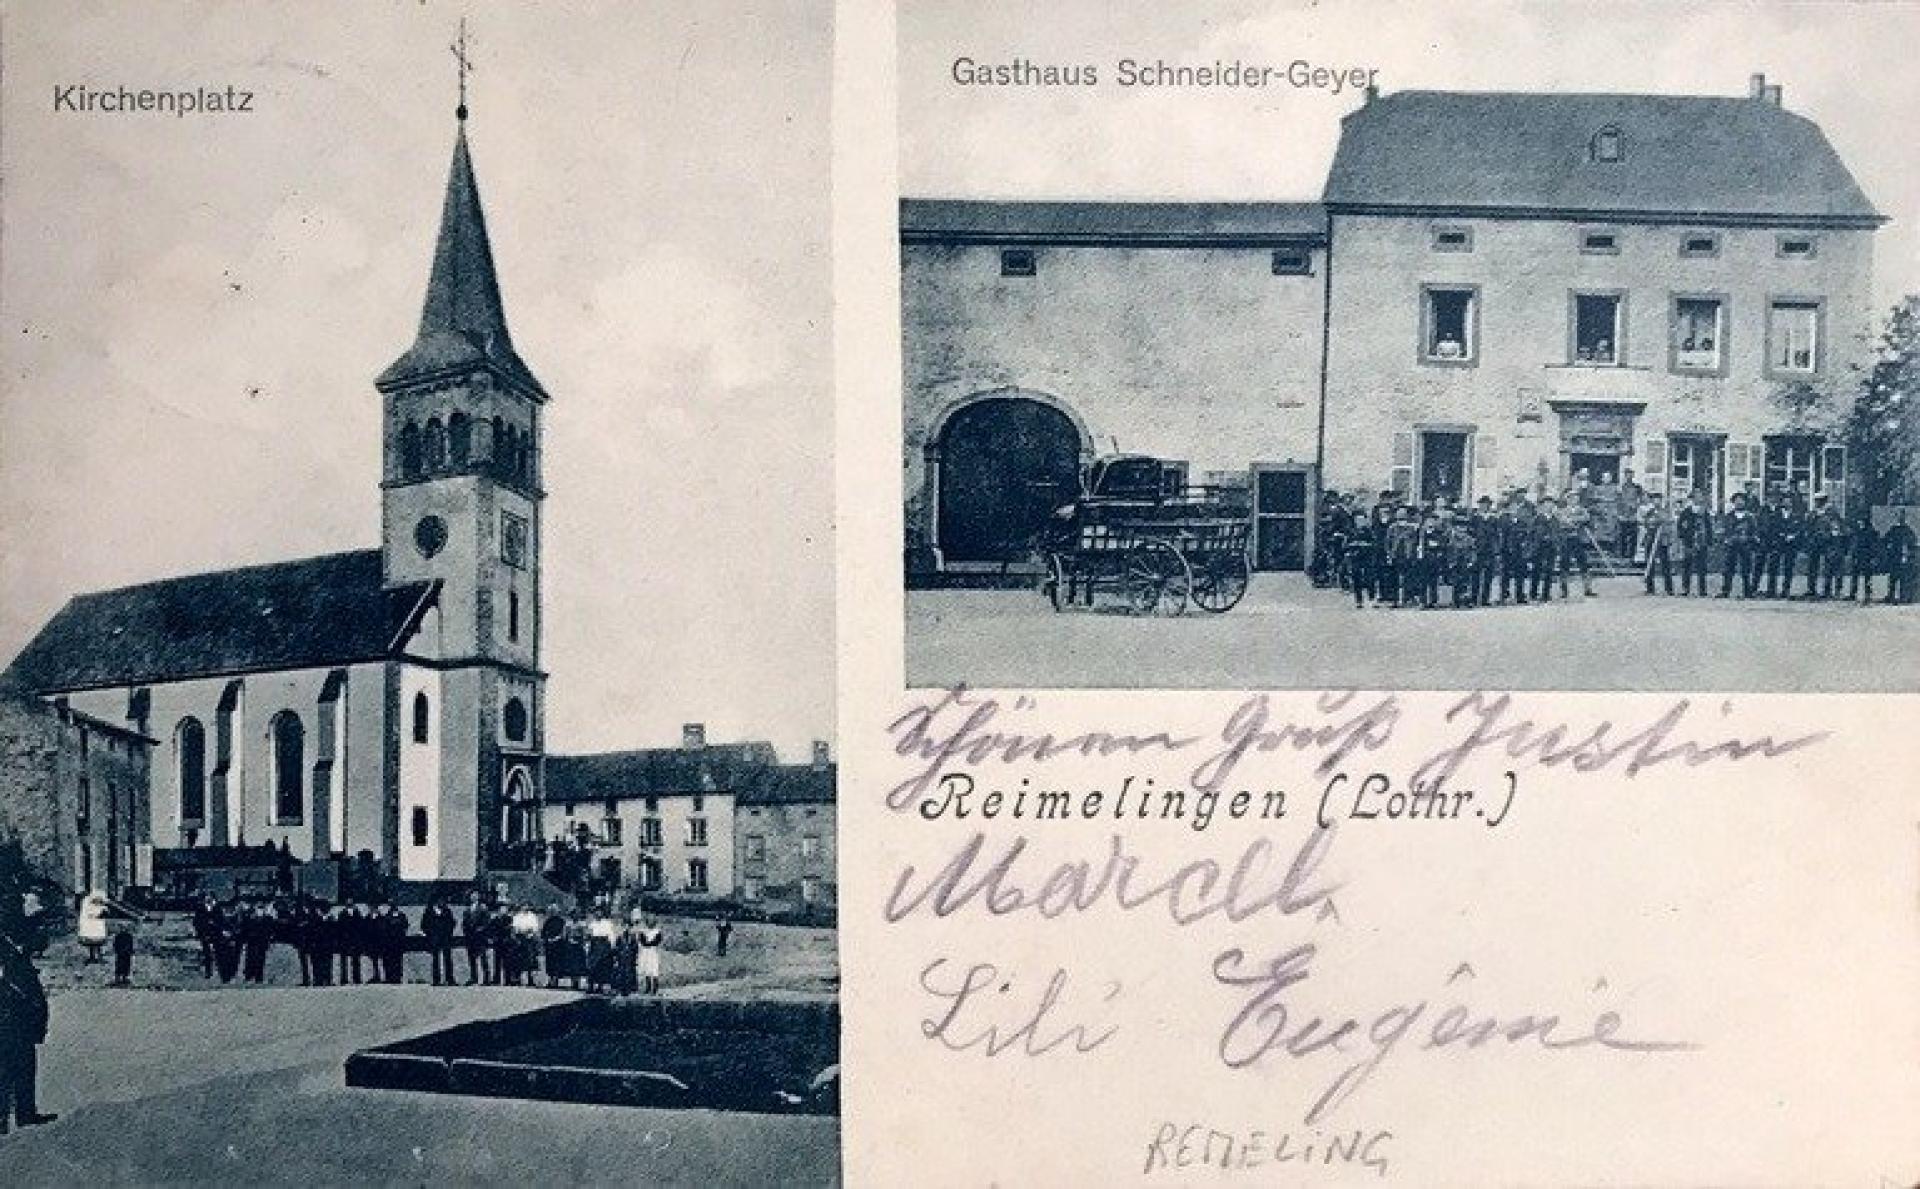 Kirchenplatz
Gasthaus Schneider-Geyer
Schönen Gruß Justin
Reimelingen (Lothr.)
Marcel
Lili Eugênie
REMELING